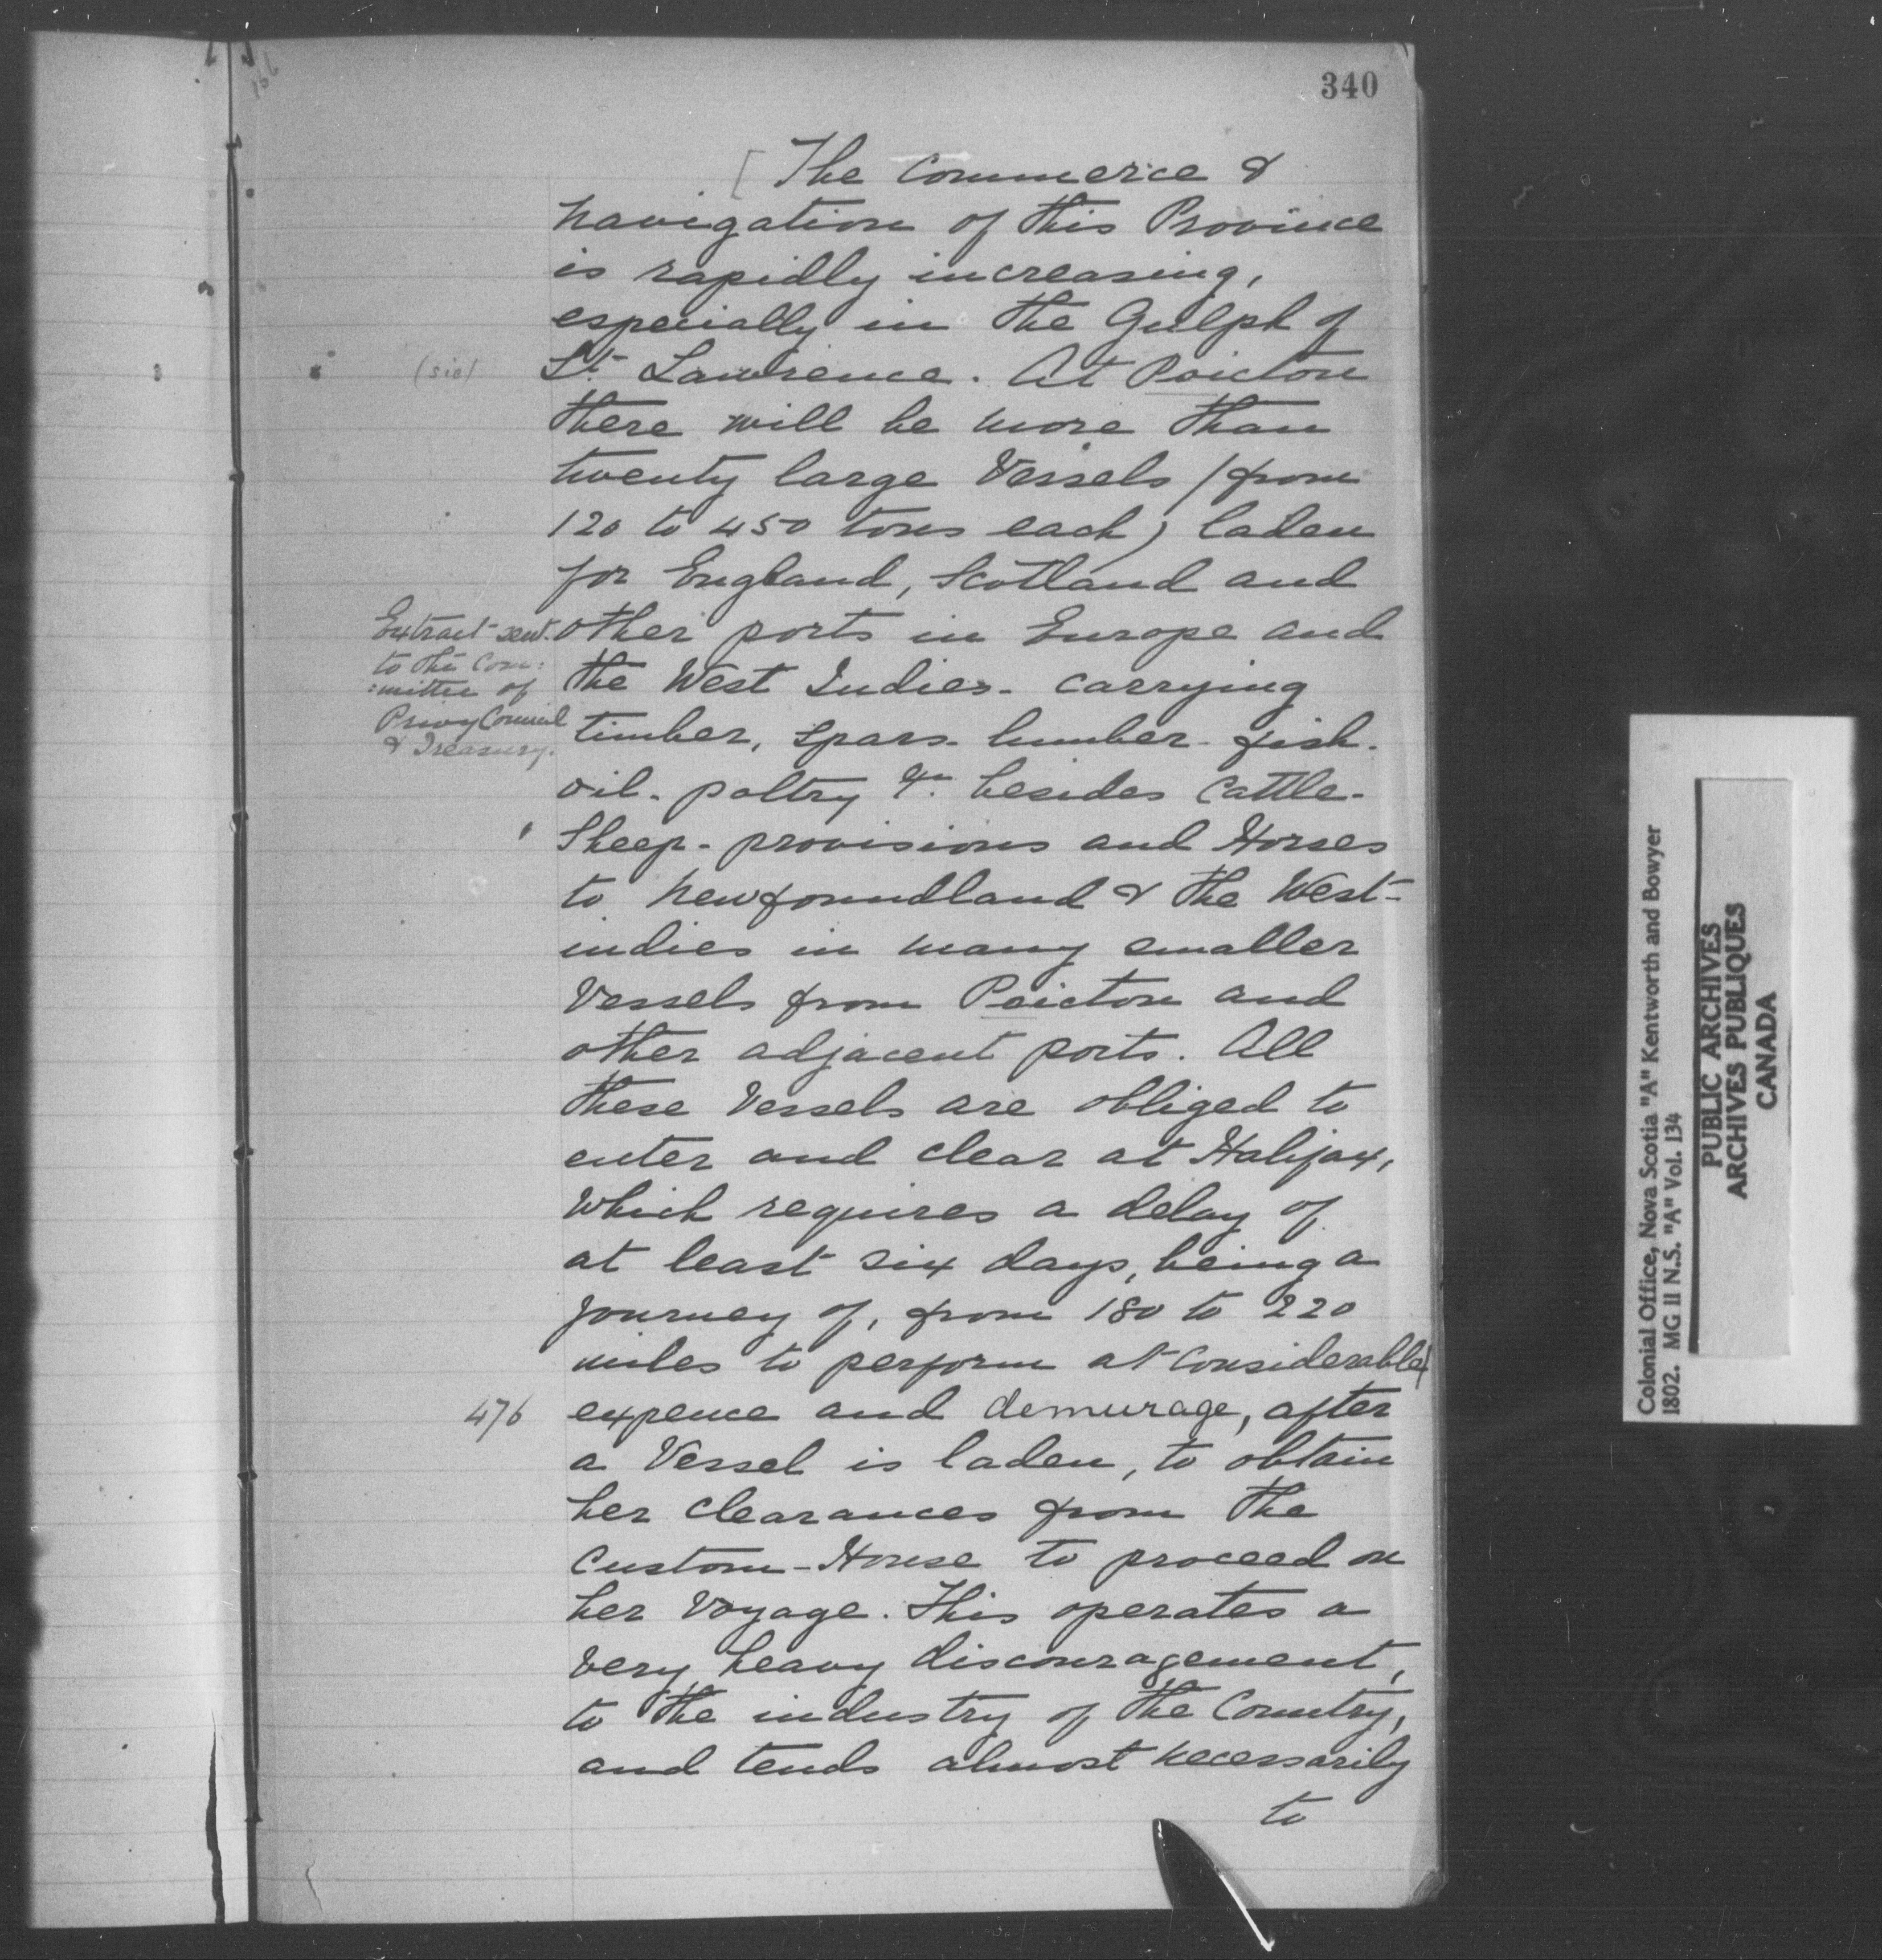 340
[ The Commerce &
navigation of this Province
is rapidly increasing,
especially in the Gulph of
(sic)
St. Lawrence. At Poicton
there will be more than
twenty large Vessels (from
120 to 450 tons each) laden
for England, Scotland and
other ports in Europe and
the West Indies - carrying
timber, spars - lumber - fish -
oil - paltry &c. besides Cattle -
Sheep - provisions and Horses
to Newfoundland & the West-
indies in many smaller
Vessels from Poicton and
other adjacent ports. All
these Vessels are obliged to
enter and clear at Halifax,
which requires a delay of
at least six days, being a
journey of, from 180 to 220
miles to perform at considerable
476
expence and demurage, after
a Vessel is laden, to obtain
her clearances from the
Custom-House to proceed on
her Voyage. This operates a
very heavy discouragement,
to the industry of the Country,
and tends almost necessarily
to
Extract sent
to the Com:
:mittee of
Privy Council
& Treasury.
Colonial Office, Nova Scotia "A" Kentworth and Bowyer
1802. MG 11 N.S. "A" Vol. 134
PUBLIC ARCHIVES
ARCHIVES PUBLIQUES
CANADA